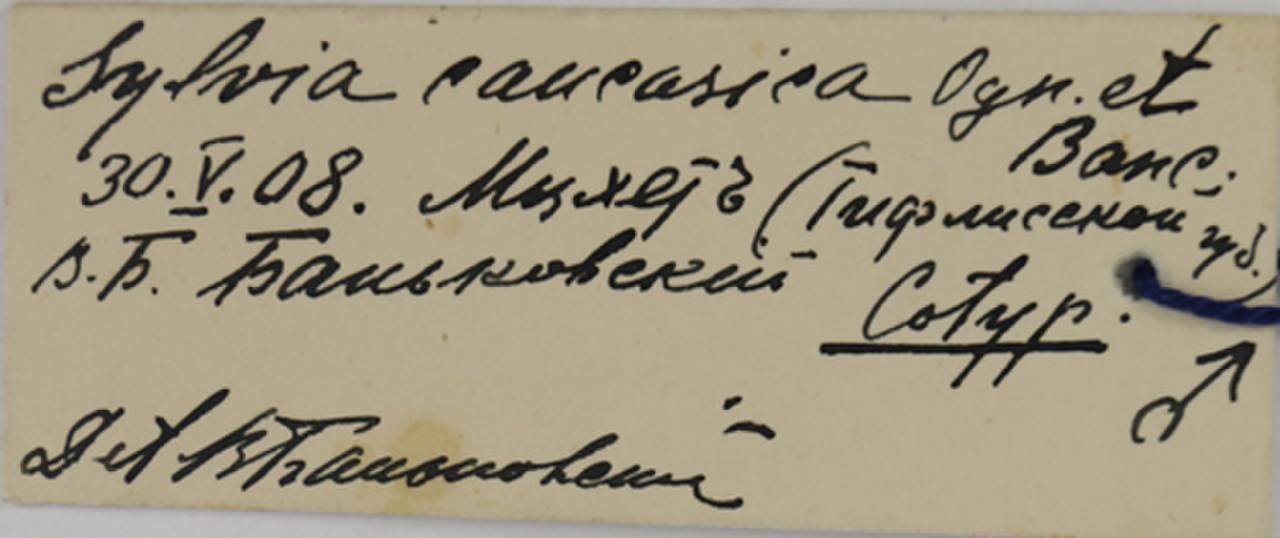 Sylvia caucasica Ogn. et
Banc.
30.V.08. Мцхетъ (Тифлисской губ.)
В.Б. Баньковский
Cotyp.
♂
Det ВБаньковский